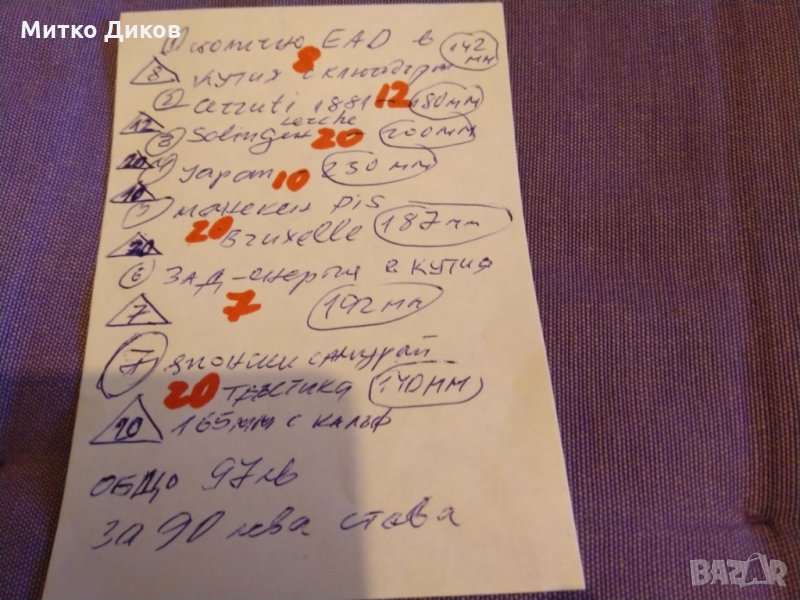 Митко Диков
1 EAD в 142 мм
8 кутия 8 с ключодърж
2 Cerruti 1881 12 180мм
12
3 Solingen 20 200мм
20 4 Japan 10 230 мм
10
5 манекен pis
20 Bruxelle 187 мм
20
6 ЗАД-енергия в кутия
7 7 192 мм
7 японски самурай
20 140мм
20 165мм с калъф
ОБЩО 97 лв
за 90 лева става
BAZAR